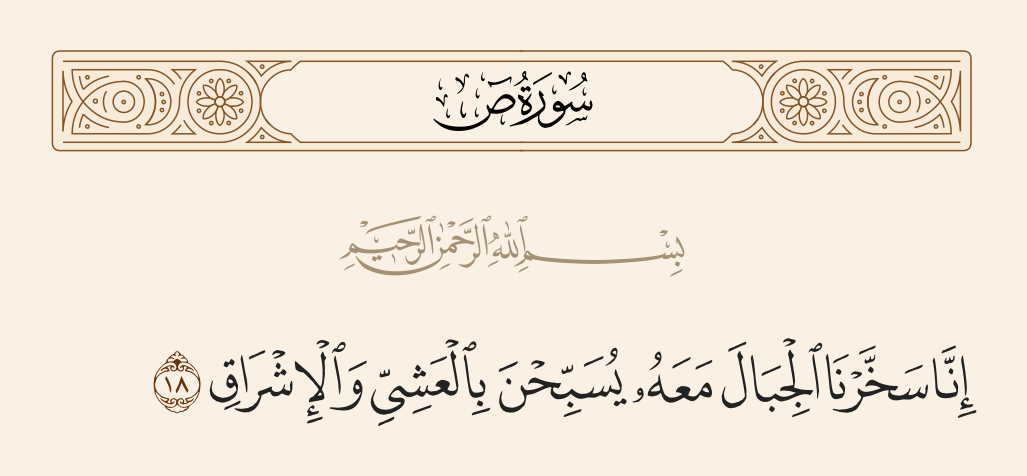 سُورَةُ صٓ
بِسْمِ ٱللَّهِ ٱلرَّحْمَٰنِ ٱلرَّحِيمِ
إِنَّا سَخَّرْنَا ٱلْجِبَالَ مَعَهُۥ يُسَبِّحْنَ بِٱلْعَشِىِّ وَٱلْإِشْرَاقِ ١٨